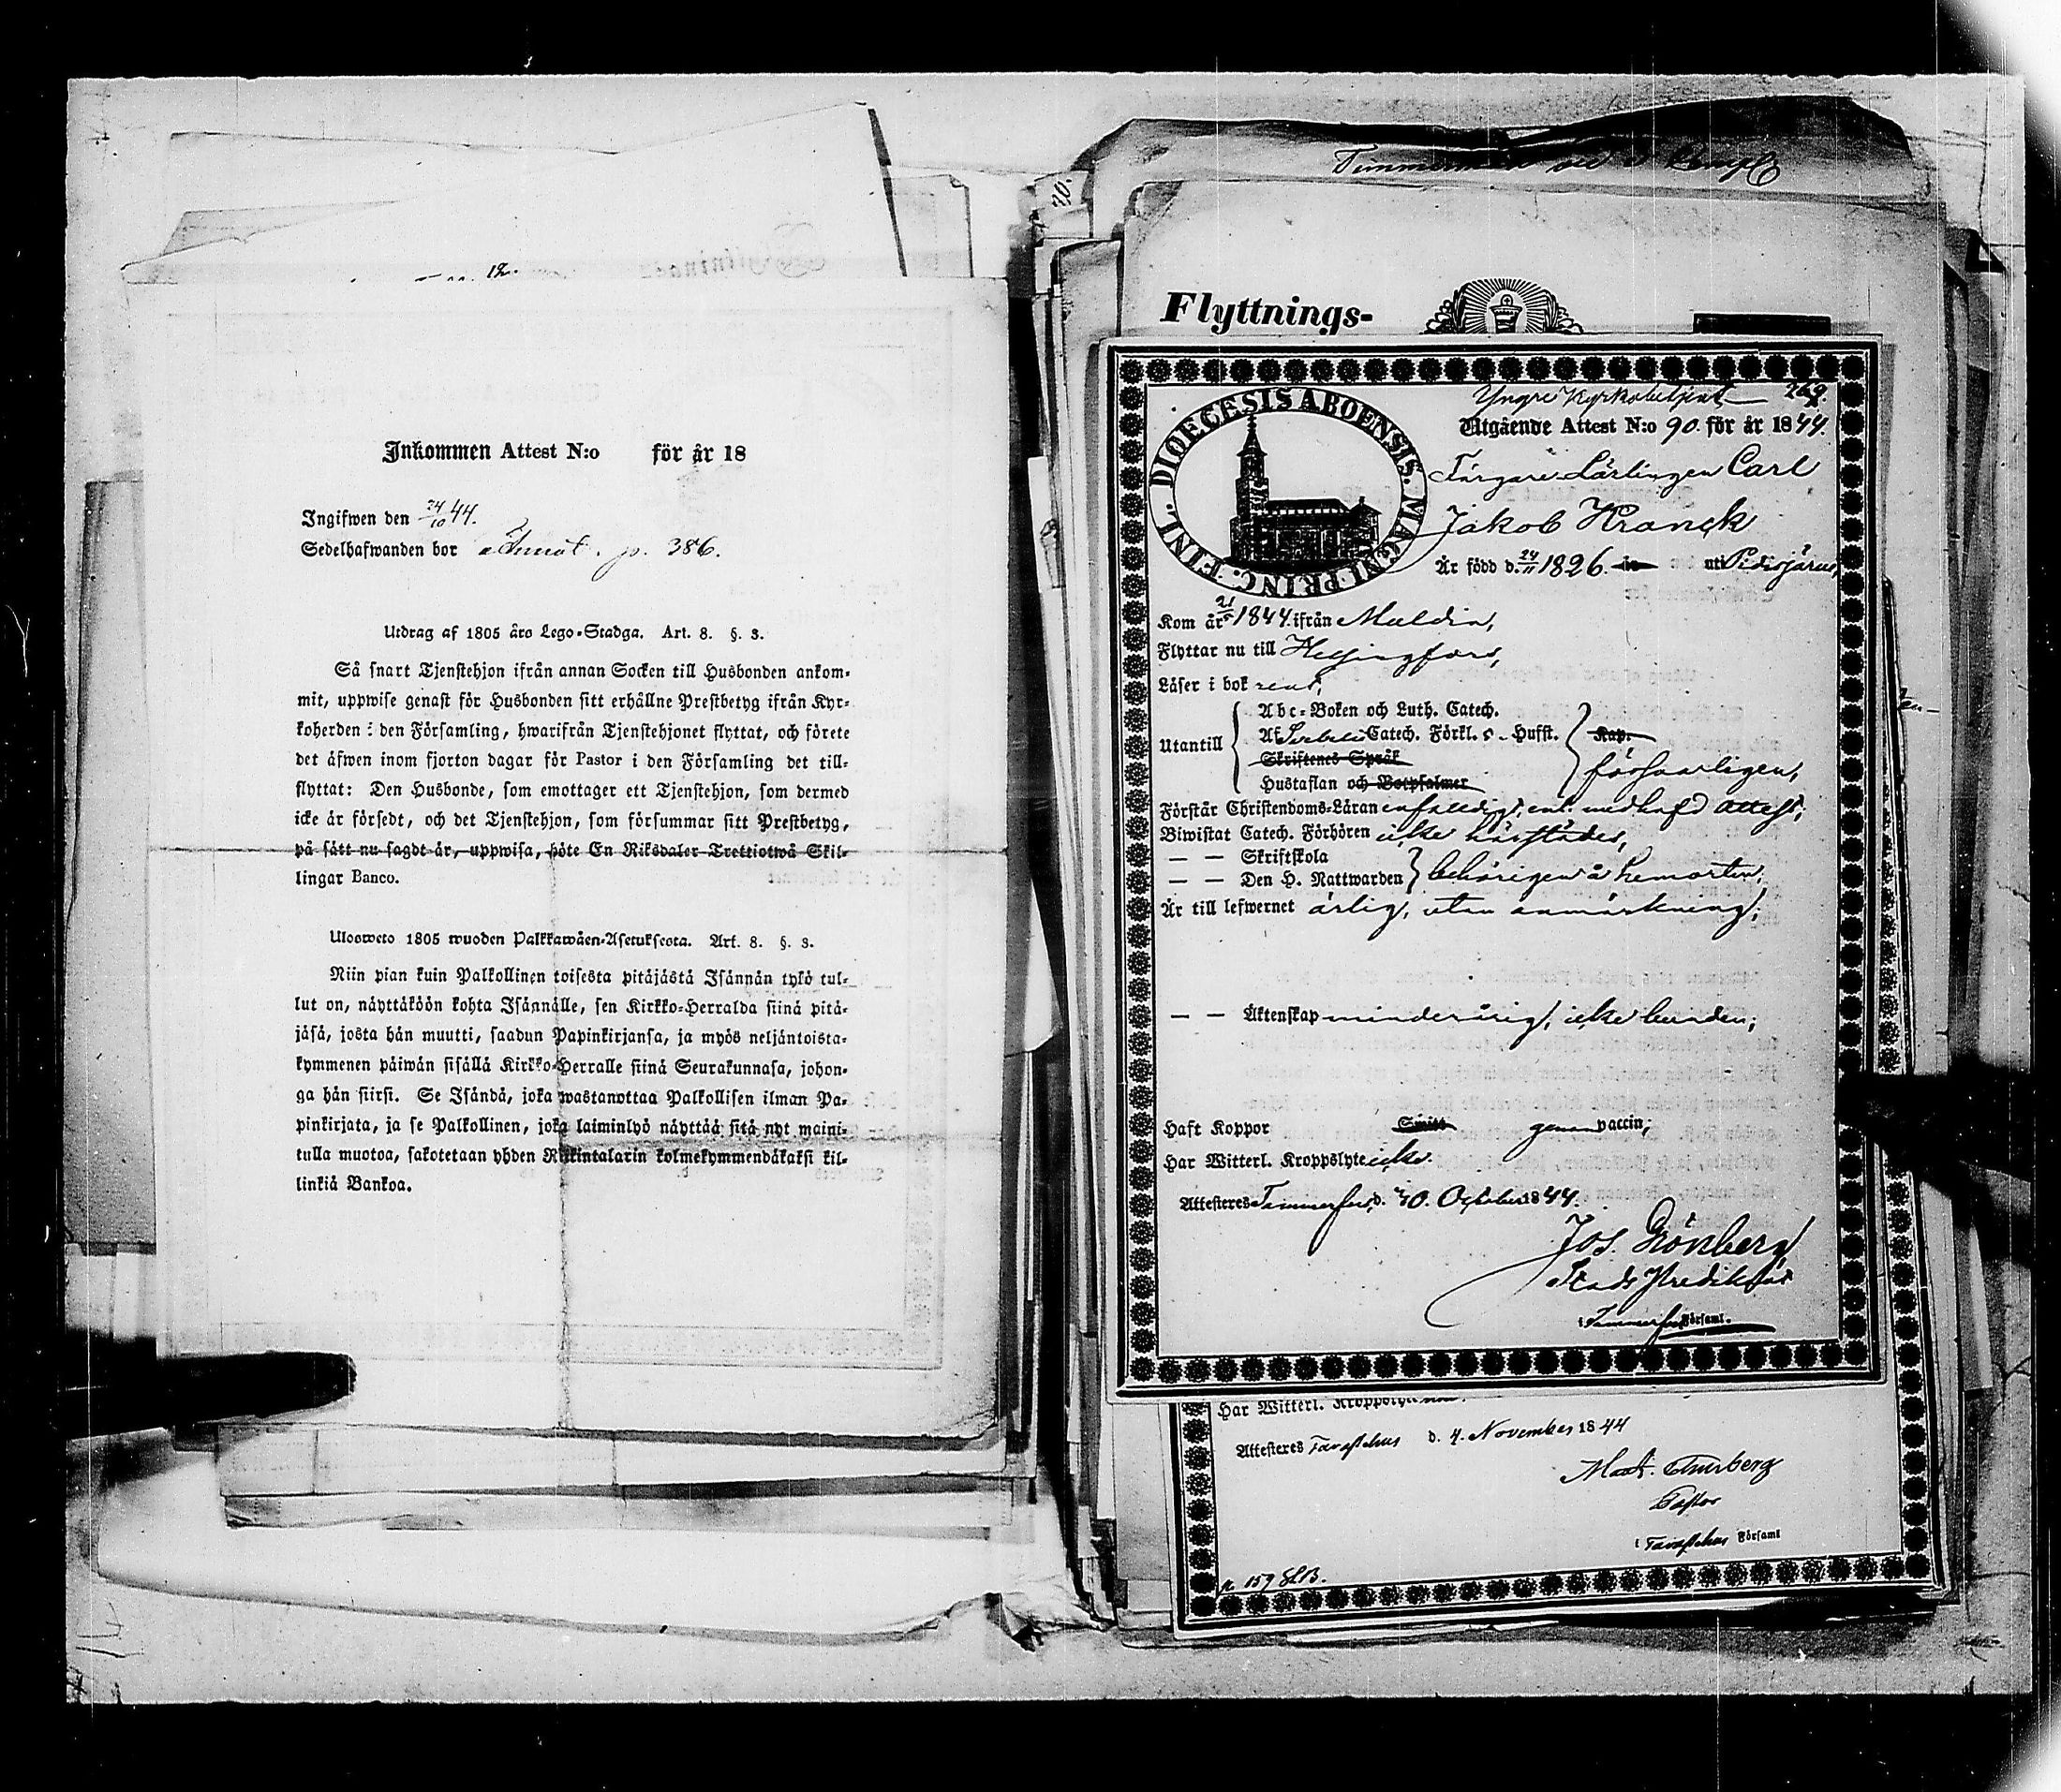 Inkommen Attest N:o för år 18
Ingifwen den 24/10 44.
Sedelhafwanden bor p. 386.
Utdrag af 1805 års Lego-Stadga. Art. 8. §. 3.
Så snart Tjenstehjon ifrån annan Socken till Husbonden ankom-
mit, uppwise genast för Husbonden sitt erhållne Prestbetyg ifrån Kyr-
koherden i den Församling, hwarifrån Tjenstehjonet flyttat, och förete
det äfwen inom fjorton dagar för Pastor i den Församling det till-
flyttat: Den Husbonde, som emottager ett Tjenstehjon, som dermed
icke är försedt, och det Tjenstehjon, som försummar sitt Prestbetyg,
på sätt nu sagdt är, uppwisa, böte En Riksdaler Trettiotwå Skil-
lingar Banco.
Ulosweto 1805 wuoden Palkkawäen-Asetuksesta. Art. 8. §. 3.
Niin pian kuin Palkollinen toisesta pitäjästä Isännän tykö tul-
lut on, näyttäköön kohta Isännälle, sen Kirkko-Herralda siinä pitä-
jäsä, josta hän muutti, saadun Papinkirjansa, ja myös neljäntoista-
kymmenen päiwän sisällä Kirkko-Herralle siinä Seurakunnasa, johon-
ga hän siirsi. Se Isändä, joka wastanottaa Palkollisen ilman Pa-
pinkirjata, ja se Palkollinen, joka laiminlyö näyttää sitä nyt maini-
tulla muotoa, sakotetaan yhden Riikintalarin kolmekymmendäkaksi kil-
linkiä Bankoa.
Flyttnings-
DIOECESIS ABOENSIS. MAGNI PRINC. FINL.
Yngre Kyrkobetjent 269.
Utgående Attest N:o 90. för år 1844.
Färgare Lärlingen Carl
Jakob Kranck
Är född d. 24/11 1826. uti Pidisjärvi,
Kom år 21/5 1844 ifrån Muldia,
Flyttar nu till Helsingfors,
Läser i bok rent,
Utantill
Abc-Boken och Luth. Catech.
Af Catech. Förkl. o. Hufft. Kap.
Skriftenes Språk
Hustaflan och Botpsalmer
försvarligen,
Förstår Christendoms-Läran enfalldigt, enl. medhafd attest;
Biwistat Catech. Förhören icke härstädes,
— — Skriftskola
— — Den H. Nattwarden behörigen å hemorten,
Är till lefwernet ärlig, utan anmärkning;
— — Äktenskap minderårig, icke bunden;
Haft Koppor Smitt genom vaccin;
Har Witterl. Kroppslyte icke.
Attesteres Tammerfors, d. 20. October 1844.
Jos. Grönberg
Stads Predikant
i Tammerfors Församl.
Har Witterl. Kroppslyte
Attesteres Tavastehus d. 4. November 1844
Pastor
i Tavastehus Församl
p. 159